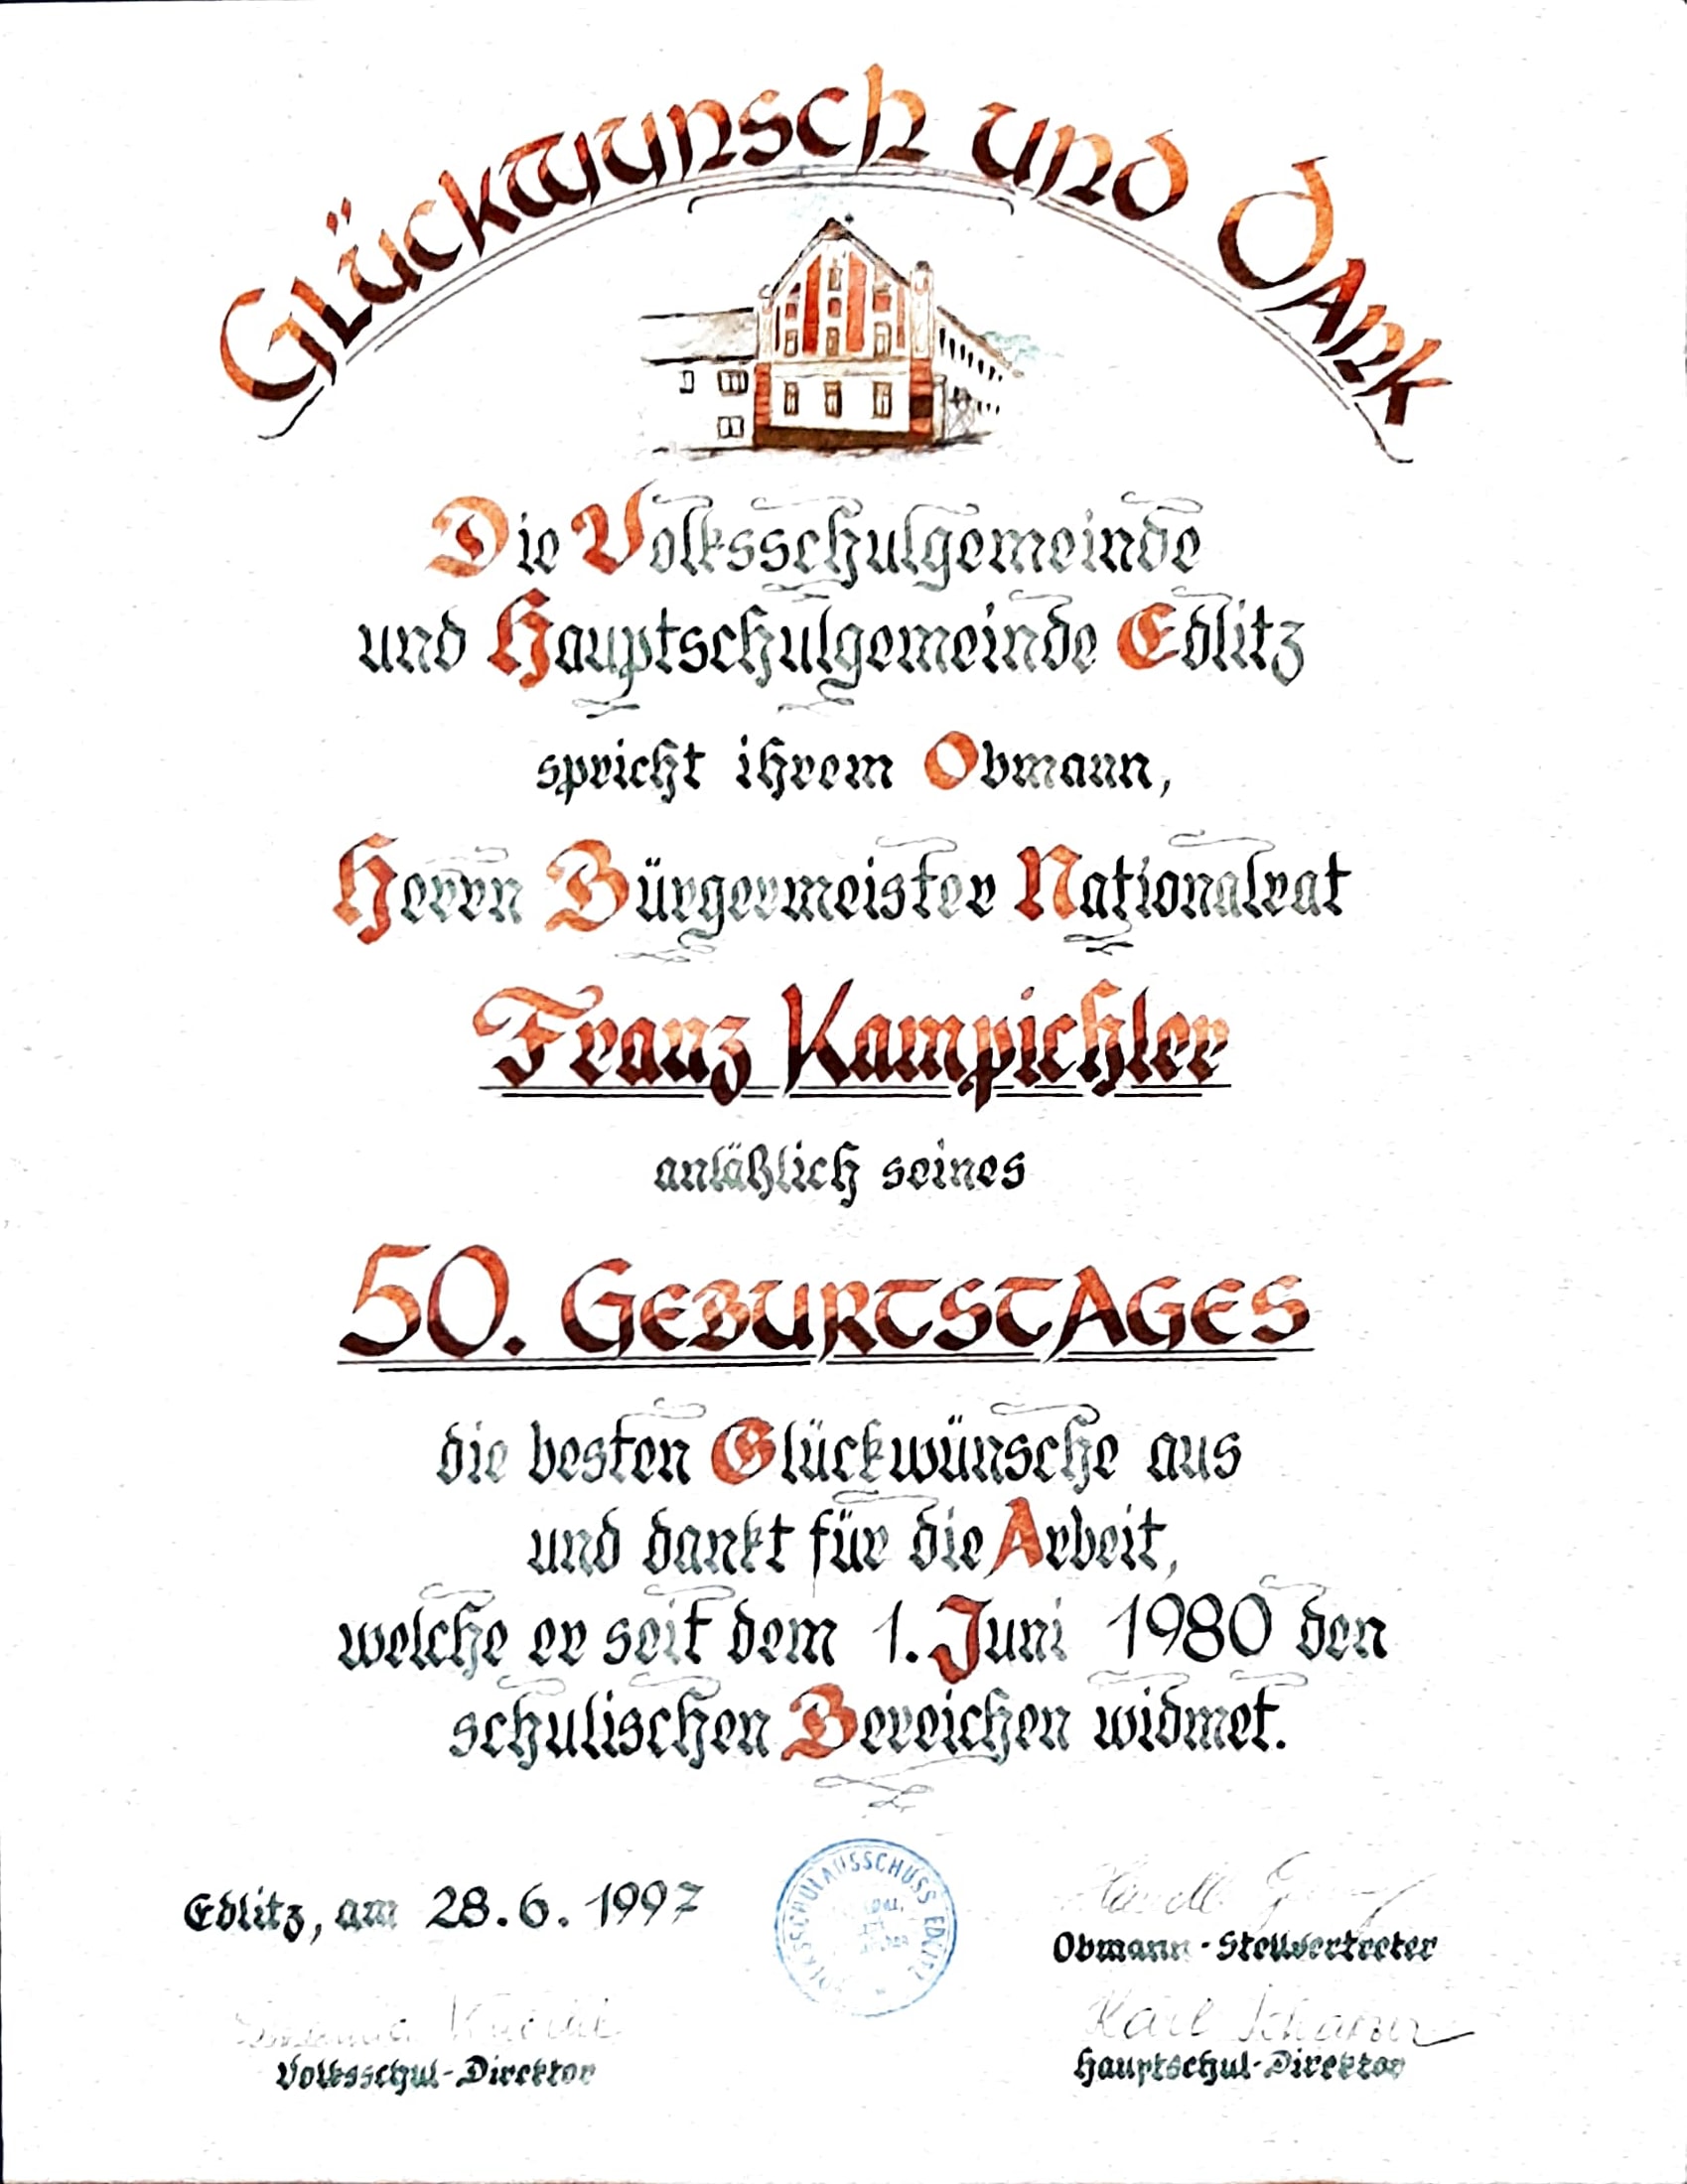 Glückwunsch und Dank
Die Volksschulgemeinde
und Hauptschulgemeinde Edlitz
spricht ihrem Obmann,
Herrn Bürgermeister Nationalrat
Franz Kampichler
anläßlich seines
50. Geburtstages
die besten Glückwünsche aus
und dankt für die Arbeit,
welche er seit dem 1. Juni 1980 den
schulischen Bereichen widmet.
Edlitz, am 28.6.1997
VOLKSSCHULAUSSCHUSS EDLITZ
Obmann-Stellvertreter
Volksschul-Direktor
Karl
Hauptschul-Direktor